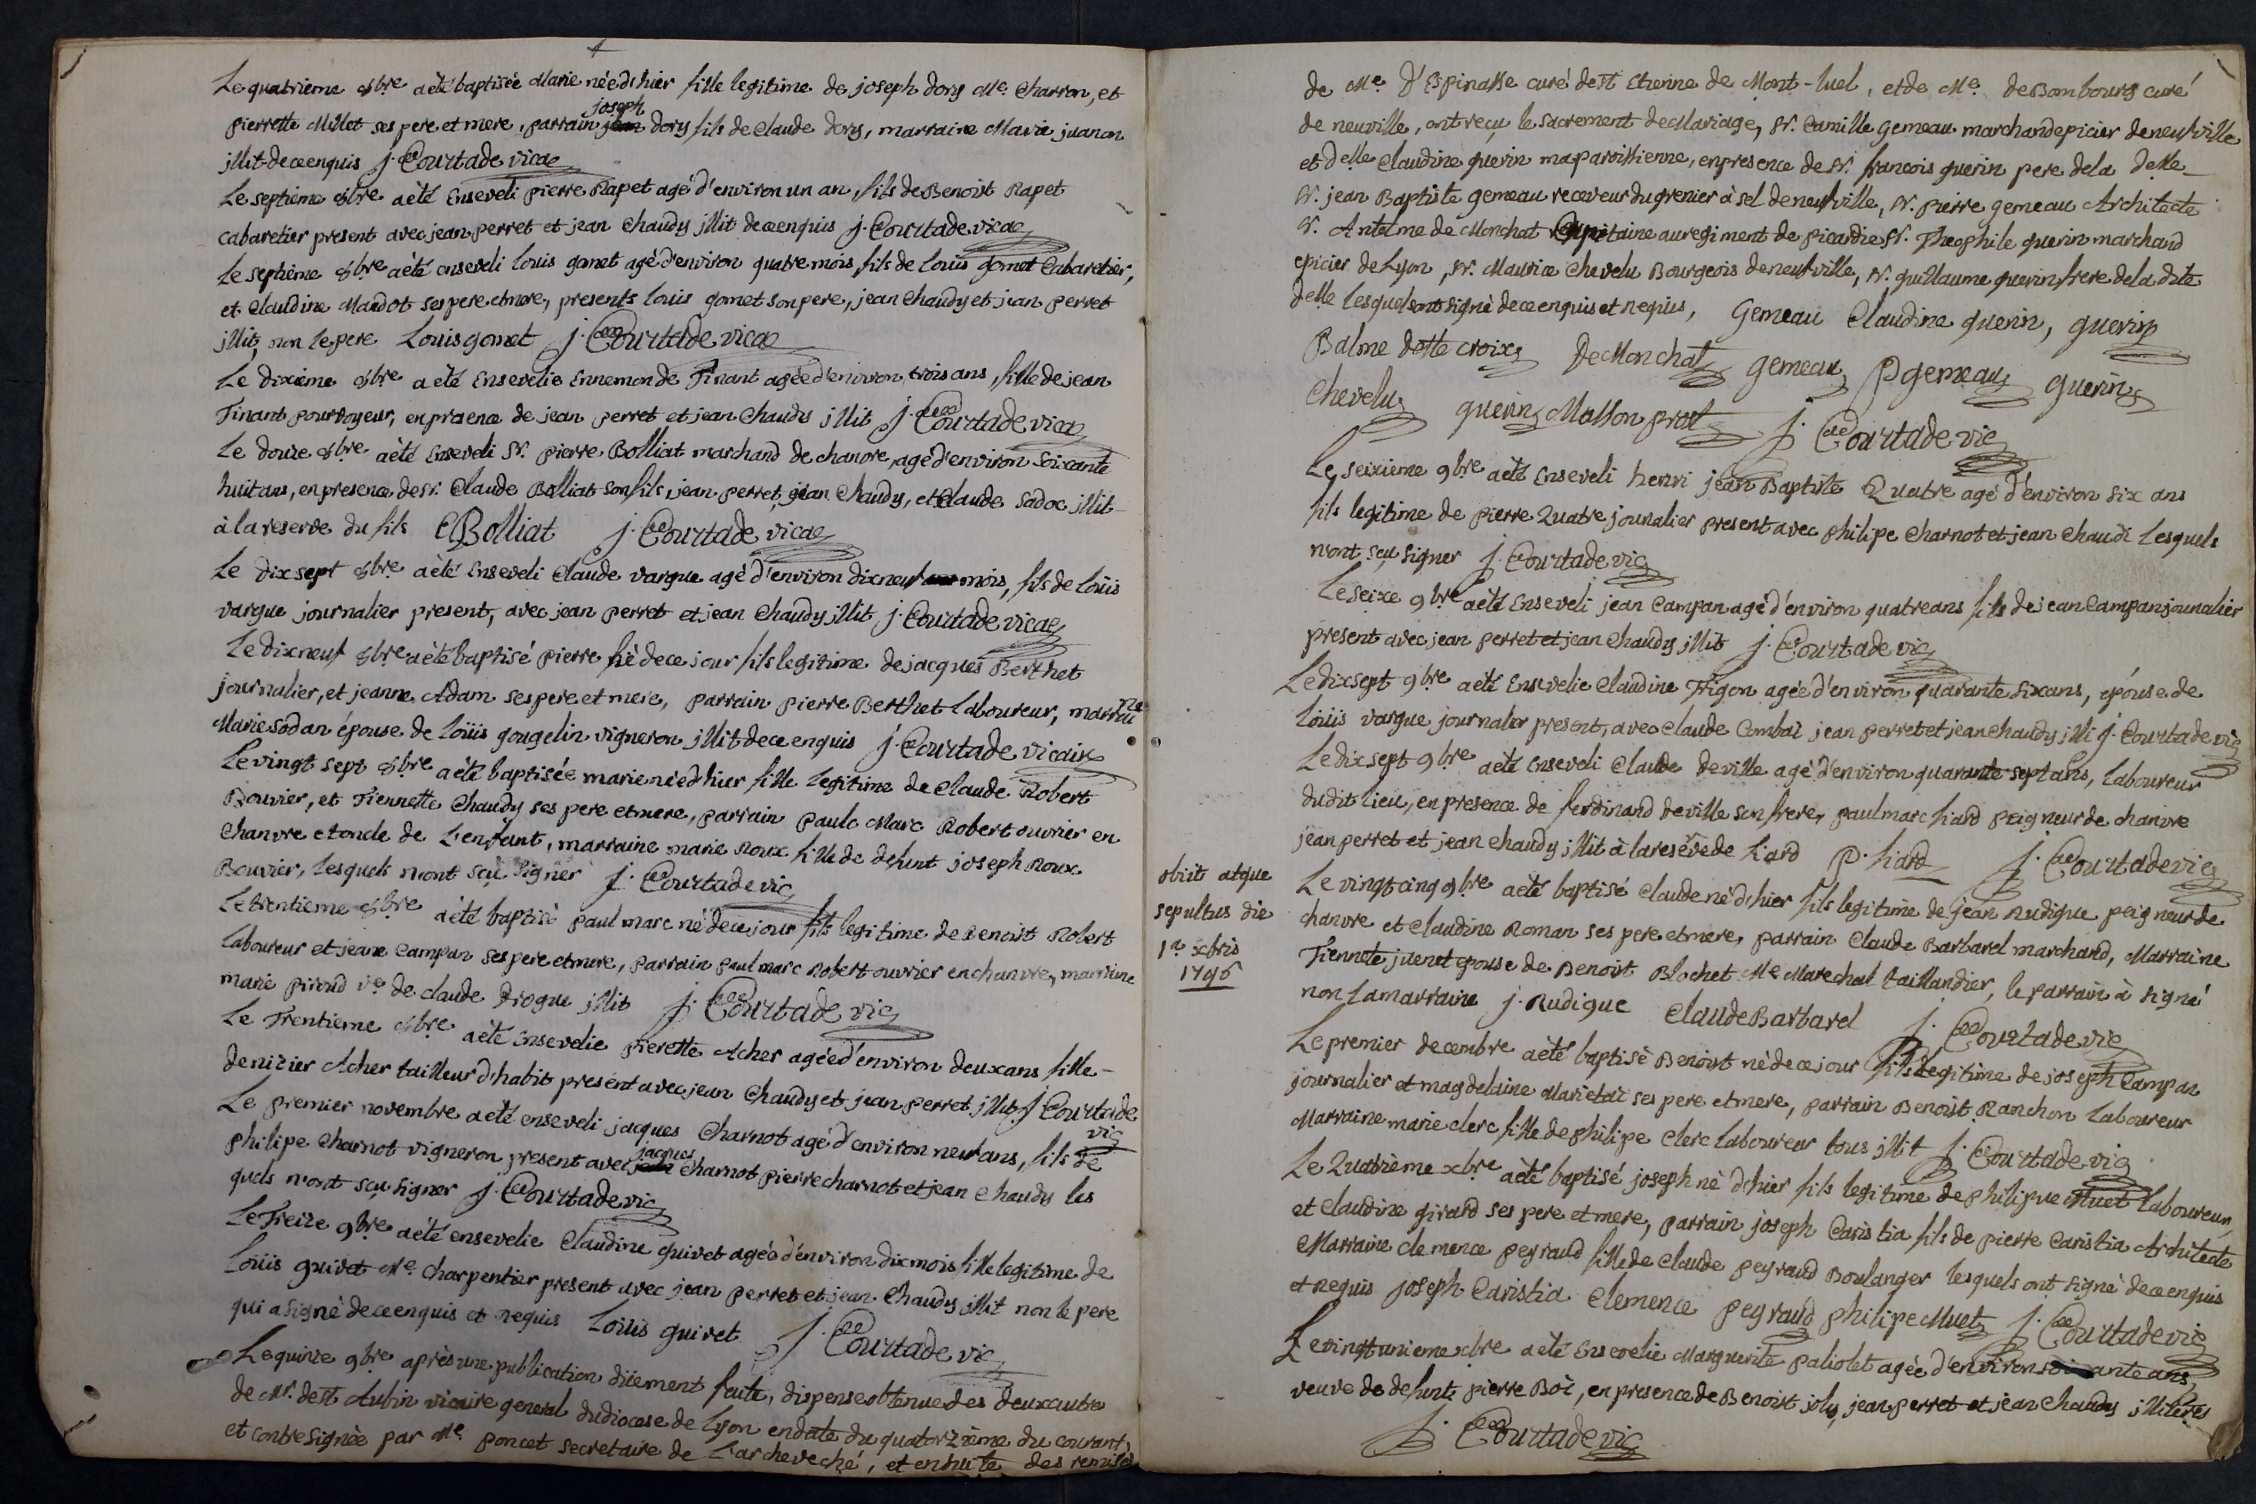 Le quatrieme 8bre a été baptisée Marie née d'hier fille legitime de joseph dory Me Charron, et
pierrette Millet ses pere et mere, parrain joseph dory fils de Claude dory, marraine Marie juanon
jllit. de ce enquis j. Courtade vicae
Le septieme 8bre a été Enseveli pierre Rapet agé d'environ un an, fils de Benoist Rapet
Cabaretier present avec jean perret et jean Chaudy jllit de ce enquis j. Courtade vicae
Le septieme 8bre a été enseveli Louis gomet agé d'environ quatre mois, fils de Louis gomet Cabaretier,
et Claudine Mandot ses pere et mere, presents Louis gomet son pere, jean Chaudy et jean perret
jllit, non le pere Louis gomet j. Courtade vicae
Le dixieme 8bre a été Ensevelie Ennemonde Tinant agée d'environ trois ans, fille de jean
Tinant pourvoyeur, en praence de jean perret et jean Chaudy jllit j. Courtade vicae
Le douze 8bre a été Enseveli Sr. pierre Bolliat marchand de chanvre, agé d'environ Soixante
huit ans, en presence de Sr. Claude Bolliat son fils, jean perret, jean Chaudy, et Claude Sadoc jllit
à la reserve du fils CBolliat j. Courtade vicae
Le dix sept 8bre a été Enseveli Claude vargue agé d'environ dix neuf mois, fils de Loüis
vargue journalier present, avec jean perret et jean Chaudy jllit j. Courtade vicae
Le dix neuf 8bre a été baptisé pierre né de ce jour fils legitime de jacques Berthet
journalier, et jeanne Adam ses pere et mere, parrain pierre Berthet Laboureur, marraine
Marie sodan épouse de Loüis gougelin vigneron jllit de ce enquis j. Courtade vicaire
Le vingt sept 8bre a été baptisée marie née d'hier fille legitime de Claude Robert
Bouvier, et Fiennette Chaudy ses pere et mere, parrain paulc Marc Robert ouvrier en
Chanvre et oncle de L'enfant, marraine marie Roux fille de defunt joseph Roux
Bouvier, Lesquels n'ont sçu signer j. Courtade vic
Le trentieme 8bre a été baptisé paul marc né de ce jour fils legitime de Benoist Robert
Laboureur et jeane Campan ses pere et mere, parrain paul marc Robert ouvrier en chanvre, marraine
marie piroud ve de claude Drogue jllit j. Courtade vic
Le Trentieme 8bre a été Ensevelie pierette Acher agée d'environ deux ans fille
de nizier Acher tailleur d'habit present avec jean Chaudy et jean perret jllit j Courtade
vic
Le premier novembre a été enseveli jacques Charnot agé d'environ neuf ans, fils de
philipe Charnot vigneron present avec jacques Charnot pierre charnot et jean Chaudy les
quels n'ont sçu signer j. Courtade vic
Le Treize 9bre a été ensevelie Claudine guivet agée d'environ dix mois fille legitime de
Loüis guivet Me. Charpentier present avec jean perret et jean Chaudy jllit non le pere
qui a signé de ce enquis et requis Loüis guivet j. Courtade vic
Le quinze 9bre après une publication düement faite, dispense obtenue des deux autres
de Mr. de St Aubin vicaire general du diocese de Lyon en date du quatorzième du courant,
et contresignée par Me poncet secretaire de L'archeveché, et en suite des remises
de Me D'Espinasse curé de St Etienne de Mont-luel, et de Me de Bombourg curé
de neuville, ont reçu le Sacrement de Mariage, Sr. Camille Gemeau marchand epicier de neufville
et Delle Claudine guerin ma paroissienne, en presence de Sr. francois guerin pere de la Delle
Sr. jean Baptiste gemeau receveur du grenier à sel de neufville, Sr. pierre gemeau Architecte
Sr. Antelme de Monchat Capitaine au regiment de picardie Sr. Theophile guerin marchand
epicier de Lyon, Sr. Maurice Chevelu Bourgeois de neufville, Sr. guillaume guerin frere de la dite
Delle lesquels ont signé de ce enquis et requis, Gemeau Claudine guerin, guerin
Balme Dette croix DeMonchat gemeau Pgemeau guerin
Chevelu guerin Masson prost j. Courtade vic
Le seizieme 9bre a été Enseveli henri jean Baptiste Quatre agé d'environ six ans
fils legitime de pierre Quatre jounalier present avec philipe Charnot et jean Chaudi Lesquels
n'ont sçu signer j. Courtade vic
Le seize 9bre a été Enseveli jean Campan agé d'environ quatre ans fils de jean Campan jounalier
present avec jean perret et jean Chaudy jllit j. Courtade vic
Le dix sept 9bre a été Ensevelie Claudine Frigon agée d'environ quarante six ans, épouse de
Loüis vargue journalier present, avec Claude Combai jean perret et jean Chaudy jlli j. Courtade vic
Le dix sept 9bre a été Enseveli Claude deville agé d'environ quarante sept ans, Laboureur
dudit lieu, en presence de ferdinand deville son frere, paul marc hard peigneur de chanvre
jean perret et jean Chaudy jllit à la reseve de hard P. hard j. Courtade vic
obiit atque
sepultus die
1a xbris
1796
Le vingt cinq 9bre a été baptisé Claude né d'hier fils legitime de jean Rudigue peigneur de
chanvre et Claudine Roman ses pere et mere, parrain Claude Barbarel marchand, Marraine
Fiennete juenet epouse de Benoist Blochet Me Marechal taillandier, le parrain à signé
non La marraine j. Rudigue Claude Barbarel j. Courtade vic
Le premier decembre a été baptisé Benoist né de ce jour fils legitime de joseph Campan
journalier et magdelaine Marietai ses pere et mere, parrain Benoist Ranchon Laboureur
Marraine marie clerc fille de philipe Clerc laboureur tous jllit j. Courtade vic
Le Quatrième xbre a été baptisé joseph né d'hier fils legitime de philipe Muet Laboureur,
et Claudine girard ses pere et mere, parrain joseph Caristia fils de pierre Caristia Architecte
Marraine clemence peyraud fille de Claude peyraud Boulanger lesquels ont signé de ce enquis
et requis joseph Caristia Clemence peyraud philipe Muet j. Courtade vic
Le vingt unieme xbre a été Ensevelie Marguerite paliolet agée d'environ soixante ans
veuve de defunt pierre Boi, en presence de Benoist joly, jean perret et jean Chaudy jlliterés
j. Courtade vic